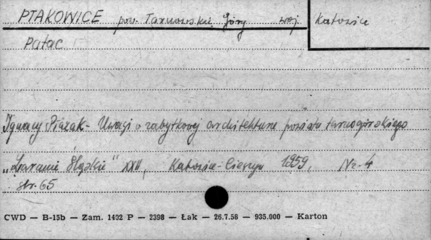 PTAKOWICE pow. Tarnowskie Góry woj. Katowice
Pałac
Ignacy Płazak - Uwagi o zabytkowej architekturze powiatu tarnogórskiego
„Zaranie Śląskie" XXII, Katowice-Cieszyn 1959, Nr. 4
str. 65
CWD — B-15b — Zam. 1402 P — 2398 — Łak — 26.7.58 — 935.000 — Karton